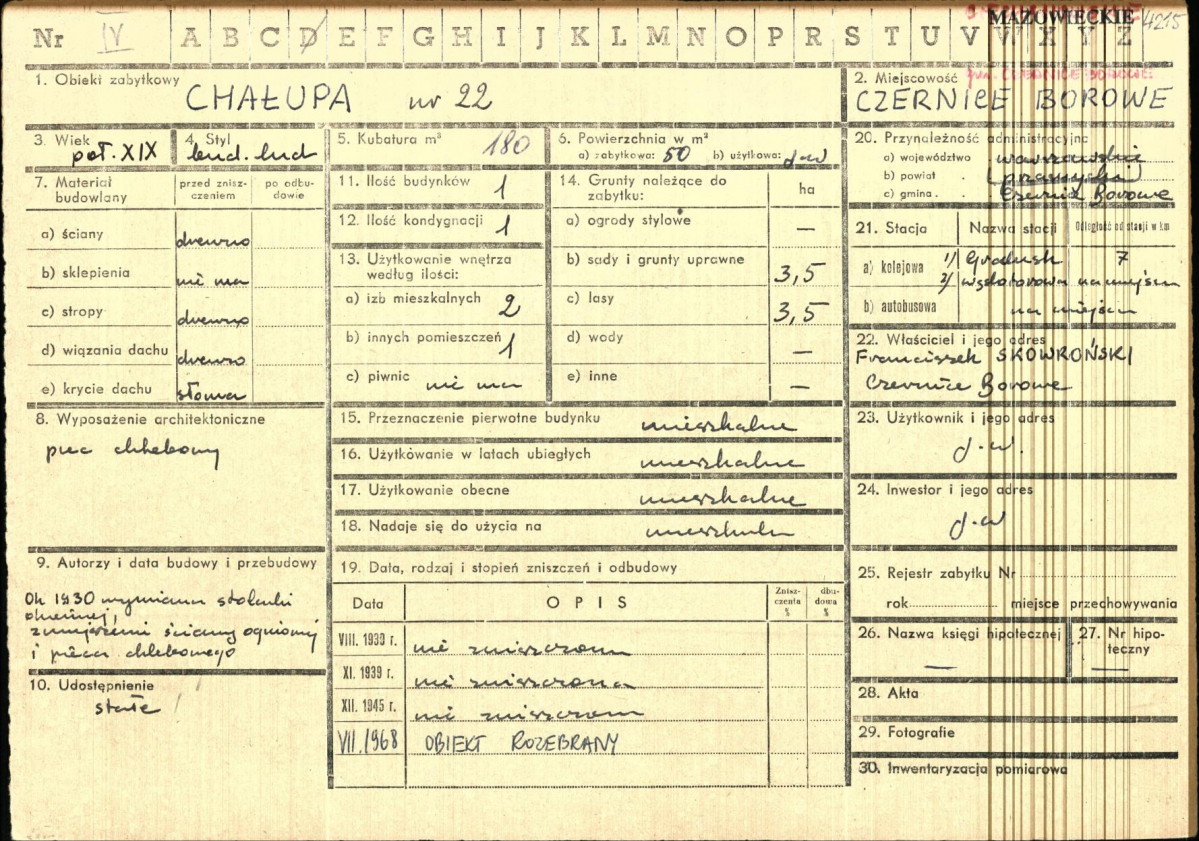 MAZOWIECKIE 4215
Nr IV A B C D E F G H I J K L M N O P R S T U V W X Y Z
1. Obiekt zabytkowy
CHAŁUPA nr 22
2. Miejscowość
gm. CZERNICE BOROWE
CZERNICE BOROWE
3. Wiek
poł. XIX
4. Styl
bud. lud
5. Kubatura m³ 180
6. Powierzchnia w m²
a) zabytkowa: 50 b) użytkowa: j-w
20. Przynależność administracyjna
a) województwo warszawskie
b) powiat . przasnyski
c) gmina . Czernice Borowe
7. Materiał budowlany
przed zniszczeniem
po odbudowie
a) ściany drewno
b) sklepienia nie ma
c) stropy drewno
d) wiązania dachu drewno
e) krycie dachu słoma
11. Ilość budynków 1
12. Ilość kondygnacji 1
13. Użytkowanie wnętrza
według ilości:
a) izb mieszkalnych 2
b) innych pomieszczeń 1
c) piwnic nie ma
14. Grunty należące do
zabytku: ha
a) ogrody stylowe —
b) sady i grunty uprawne 3,5
c) lasy 3,5
d) wody —
e) inne —
21. Stacja Nazwa stacji Odległość od stacji w km
a) kolejowa 1/ Grudusk 7
2/ wąskotorowa na miejscu
b) autobusowa na miejscu
22. Właściciel i jego adres
Franciszek SKOWROŃSKI
Czernice Borowe
8. Wyposażenie architektoniczne
piec chlebowy
15. Przeznaczenie pierwotne budynku mieszkalne
16. Użytkowanie w latach ubiegłych mieszkalne
17. Użytkowanie obecne mieszkalne
18. Nadaje się do użycia na mieszkalne
23. Użytkownik i jego adres
j-w.
24. Inwestor i jego adres
j-w
9. Autorzy i data budowy i przebudowy
Ok 1930 wymiana stolarki
okiennej,
zmniejszenie ściany ogniowej
i pieca chlebowego
10. Udostępnienie
stałe
19. Data, rodzaj i stopień zniszczeń i odbudowy
Data OPIS Zniszczenia % dbudowa %
VIII. 1939 r. nie zniszczona
XI. 1939 r. nie zniszczona
XII. 1945 r. nie zniszczona
VII. 1968 OBIEKT ROZEBRANY
25. Rejestr zabytku Nr
rok miejsce przechowywania
26. Nazwa księgi hipotecznej
—
27. Nr hipoteczny
—
28. Akta
29. Fotografie
30. Inwentaryzacja pomiarowa